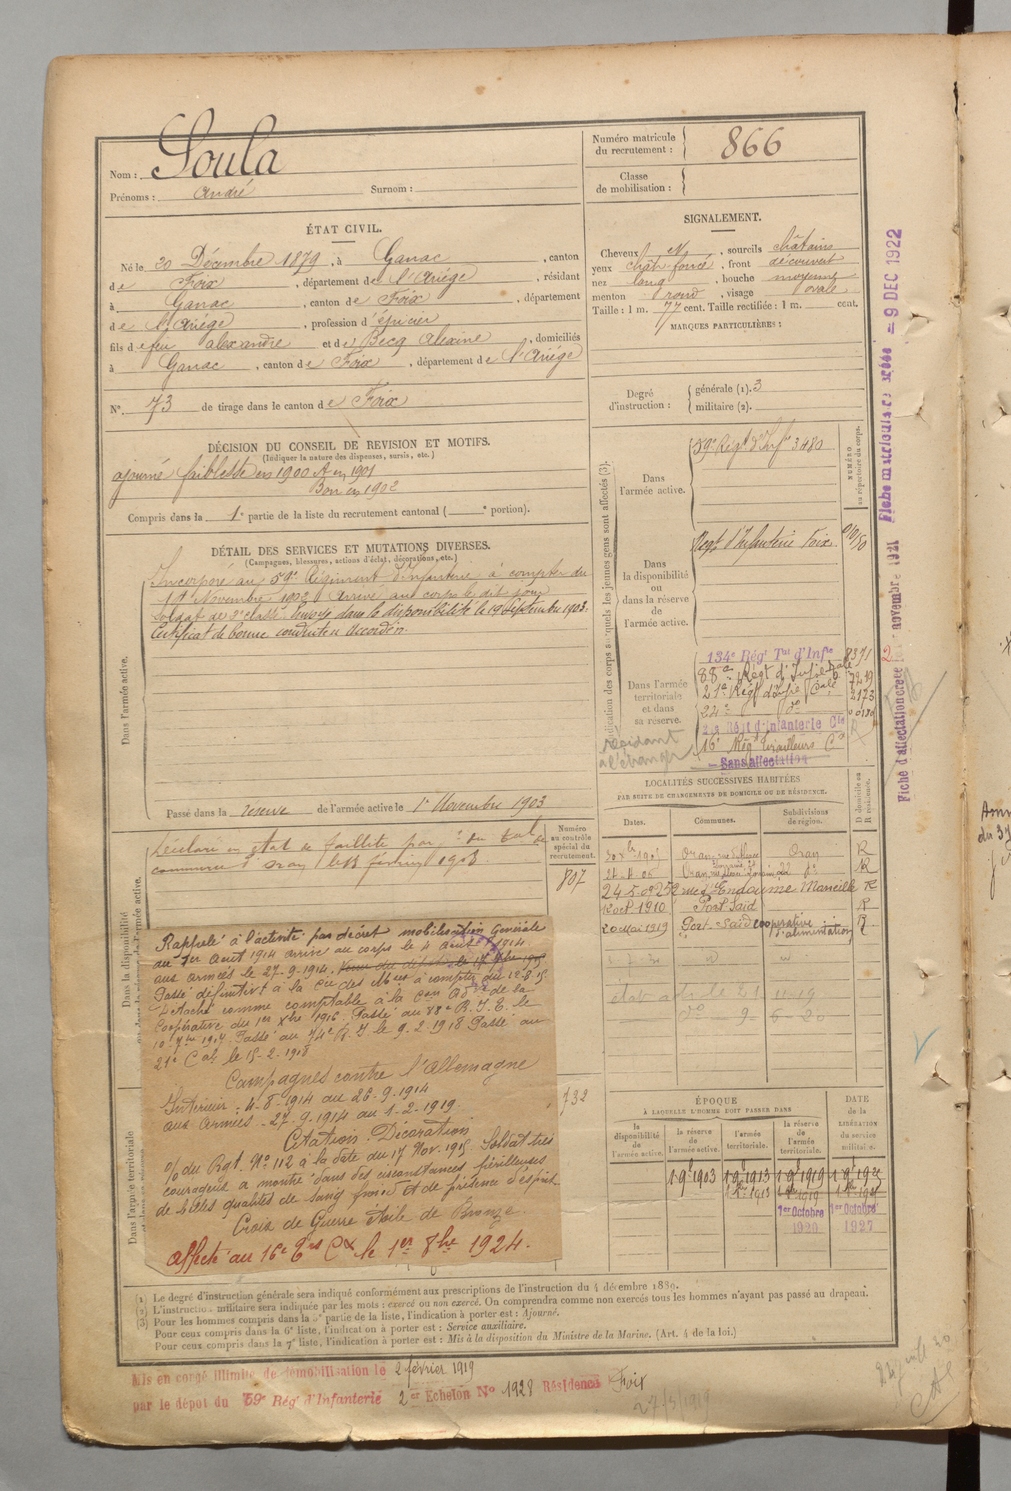 Nom : Soula
Prénoms : André Surnom :
Numéro matricule du recrutement : 866
Classe de mobilisation :
ÉTAT CIVIL.
Né le 20 Décembre 1879, à Ganac, canton
de Foix, département de l'Ariège, résidant
à Ganac, canton de Foix, département
de l'Ariège, profession d'épicier
fils de feu alexandre et de Becq Alexine, domiciliés
à Ganac, canton de Foix, département de l'Ariège
N°. 73 de tirage dans le canton de Foix
SIGNALEMENT.
Cheveux N, sourcils châtains
yeux chât. foncé, front découvert
nez long, bouche moyenne
menton rond, visage ovale
Taille : 1 m. 77 cent. Taille rectifiée : 1 m. cent.
MARQUES PARTICULIÈRES :
Degré d'instruction : générale (1). 3
militaire (2).
DÉCISION DU CONSEIL DE REVISION ET MOTIFS.
(Indiquer la nature des dispenses, sursis, etc.)
ajourné faiblesse en 1900 et en 1901
Bon en 1902
Compris dans la 1e partie de la liste du recrutement cantonal ( e portion).
DÉTAIL DES SERVICES ET MUTATIONS DIVERSES.
(Campagnes, blessures, actions d'éclat, décorations, etc.)
Dans l'armée active.
Incorporé au 59e Régiment d'infanterie à compter du
14 Novembre 1902. Arrivé au corps le dit jour
soldat de 2e classe. Envoyé dans la disponibilité le 19 Septembre 1903.
Certificat de bonne conduite accordé.
Passé dans la réserve de l'armée active le 1er Novembre 1903
Numéro au contrôle spécial du recrutement.
807
732
Déclaré en état de faillite par du tal de
commerce d'oran le 13 février 1908.
Dans l'armée territoriale
Rappelé à l'activité par décret mobilisation Générale
du 1er Aout 1914 arrivé au corps le 4 aout 1914
aux armées le 27-9-1914.
Passé définitivt à la à compter du 12-8-15
Détaché comme comptable à la de la
Coopérative du 1er Xbre 1916. Passé au 88e R.I.T. le
10-7bre 1917. Passé au 74e R.I le 9-2-1918. Passé au
21e Cal le 15-2-1918
Campagnes contre l'Allemagne
Intérieur : 4-8-1914 au 26-9-1914
aux Armées - 27-9-1914 au 1-2-1919.
Citation. Décoration
O/ du Rgt. N° 112 à la date du 17 Nov. 1915. Soldat très
courageux a montré dans des circonstances périlleuses
de belles qualités de sang froid et de présence d'esprit.
Croix de Guerre Étoile de Bronze.
Affecté au 16e Crs Cx le 1er 8bre 1924.
Indication des corps auxquels les jeunes gens sont affectés (3).
NUMÉRO au répertoire du corps.
Dans l'armée active.
59e Régt d'Inf. 3480
Dans la disponibilité ou dans la réserve de l'armée active.
Régt d'Infanterie Foix
Dans l'armée territoriale et dans sa réserve.
134e Régt Tal d'Infie 8391
88e Régt d'Infie 7249
21e Régt d'Infie Cale 2173
24e do
23 Régt d'infanterie Cle
16e Rég Tirailleurs Cx
Sans affectation
résidant
à l'étranger
LOCALITÉS SUCCESSIVES HABITÉES
PAR SUITE DE CHANGEMENTS DE DOMICILE OU DE RÉSIDENCE.
Dates. Communes. Subdivisions de région. D domicile ou R résidence.
Oran R
R
24-5-09 rue d'Endoume Marseille R
12 oct. 1910 Port Saïd R
20 mai 1919 Port-Saïd coopérative d'alimentation R
ÉPOQUE
À LAQUELLE L'HOMME DOIT PASSER DANS
la disponibilité de l'armée active.
la réserve de l'armée active.
l'armée territoriale.
la réserve de l'armée territoriale.
DATE de la LIBÉRATION du service militaire.
1-9-1903
1er Octobre 1920
1er Octobre 1927
(1) Le degré d'instruction générale sera indiqué conformément aux prescriptions de l'instruction du 4 décembre 1889.
(2) L'instruction militaire sera indiquée par les mots : exercé ou non exercé. On comprendra comme non exercés tous les hommes n'ayant pas passé au drapeau.
(3) Pour les hommes compris dans la 5e partie de la liste, l'indication à porter est : Ajourné.
Pour ceux compris dans la 6e liste, l'indication à porter est : Service auxiliaire.
Pour ceux compris dans la 7e liste, l'indication à porter est : Mis à la disposition du Ministre de la Marine. (Art. 4 de la loi.)
Mis en congé illimité de démobilisation le 2 février 1919
par le dépot du 59e Rég' d'Infanterie 2me Echelon N° 1928 Résidence Foix
27/3/1919
Fiche matriculaire créée = 9 DEC 1922
Fiche d'affectation créée le 2 novembre 1921